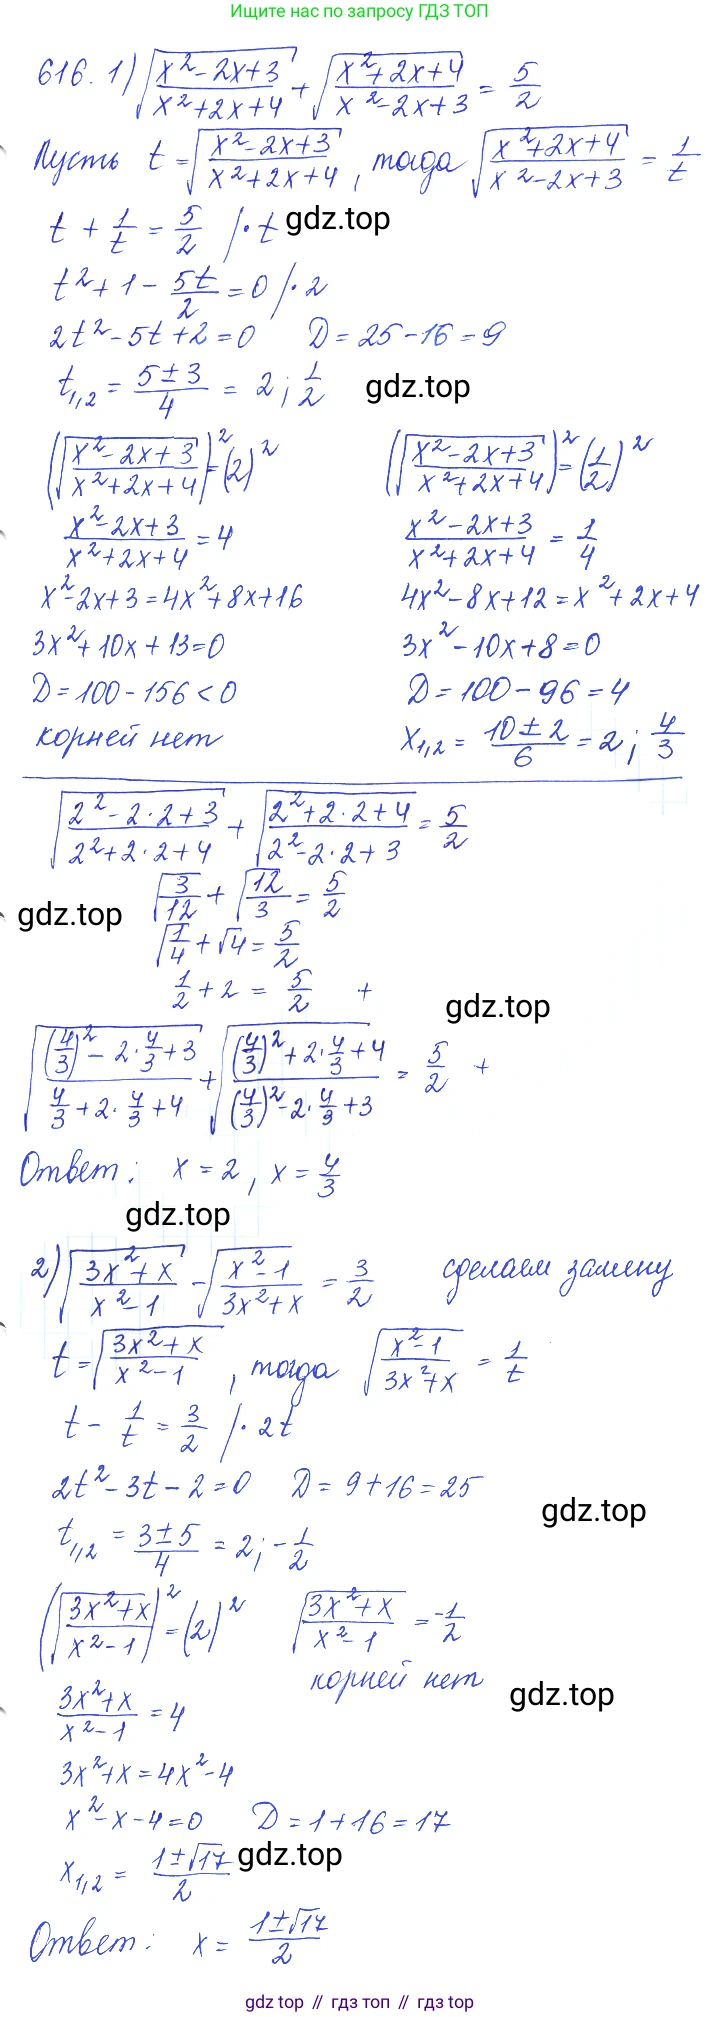 Ищите нас по запросу ГДЗ ТОП
616. 1) √((x²-2x+3)/(x²+2x+4)) + √((x²+2x+4)/(x²-2x+3)) = 5/2
Пусть t = √((x²-2x+3)/(x²+2x+4)), тогда √((x²+2x+4)/(x²-2x+3)) = 1/t
t + 1/t = 5/2 /·t
gdz.top
t² + 1 - 5t/2 = 0 /·2
2t² - 5t + 2 = 0 D = 25 - 16 = 9
t₁,₂ = (5±3)/4 = 2; 1/2
gdz.top
(√((x²-2x+3)/(x²+2x+4)))² = (2)² (√((x²-2x+3)/(x²+2x+4)))² = (1/2)²
(x²-2x+3)/(x²+2x+4) = 4 (x²-2x+3)/(x²+2x+4) = 1/4
x²-2x+3 = 4x²+8x+16 4x²-8x+12 = x²+2x+4
3x²+10x+13=0 3x²-10x+8=0
D=100-156<0 D=100-96=4
корней нет x₁,₂ = (10±2)/6 = 2; 4/3
√((2²-2·2+3)/(2²+2·2+4)) + √((2²+2·2+4)/(2²-2·2+3)) = 5/2
gdz.top
√(3/12) + √(12/3) = 5/2
√(1/4) + √4 = 5/2
1/2 + 2 = 5/2 +
gdz.top
√(((4/3)²-2·4/3+3)/(4/3+2·4/3+4)) + √(((4/3)²+2·4/3+4)/((4/3)²-2·4/3+3)) = 5/2 +
Ответ: x=2, x=4/3
gdz.top
2) √((3x²+x)/(x²-1)) - √((x²-1)/(3x²+x)) = 3/2 сделаем замену
t = √((3x²+x)/(x²-1)), тогда √((x²-1)/(3x²+x)) = 1/t
t - 1/t = 3/2 /·2t
2t²-3t-2=0 D=9+16=25
gdz.top
t₁,₂ = (3±5)/4 = 2; -1/2
(√((3x²+x)/(x²-1)))² = (2)² √((3x²+x)/(x²-1)) = -1/2
корней нет
gdz.top
(3x²+x)/(x²-1) = 4
3x²+x=4x²-4
x²-x-4=0 D=1+16=17
x₁,₂ = (1±√17)/2
gdz.top
Ответ: x = (1±√17)/2
gdz top // гдз топ // gdz top